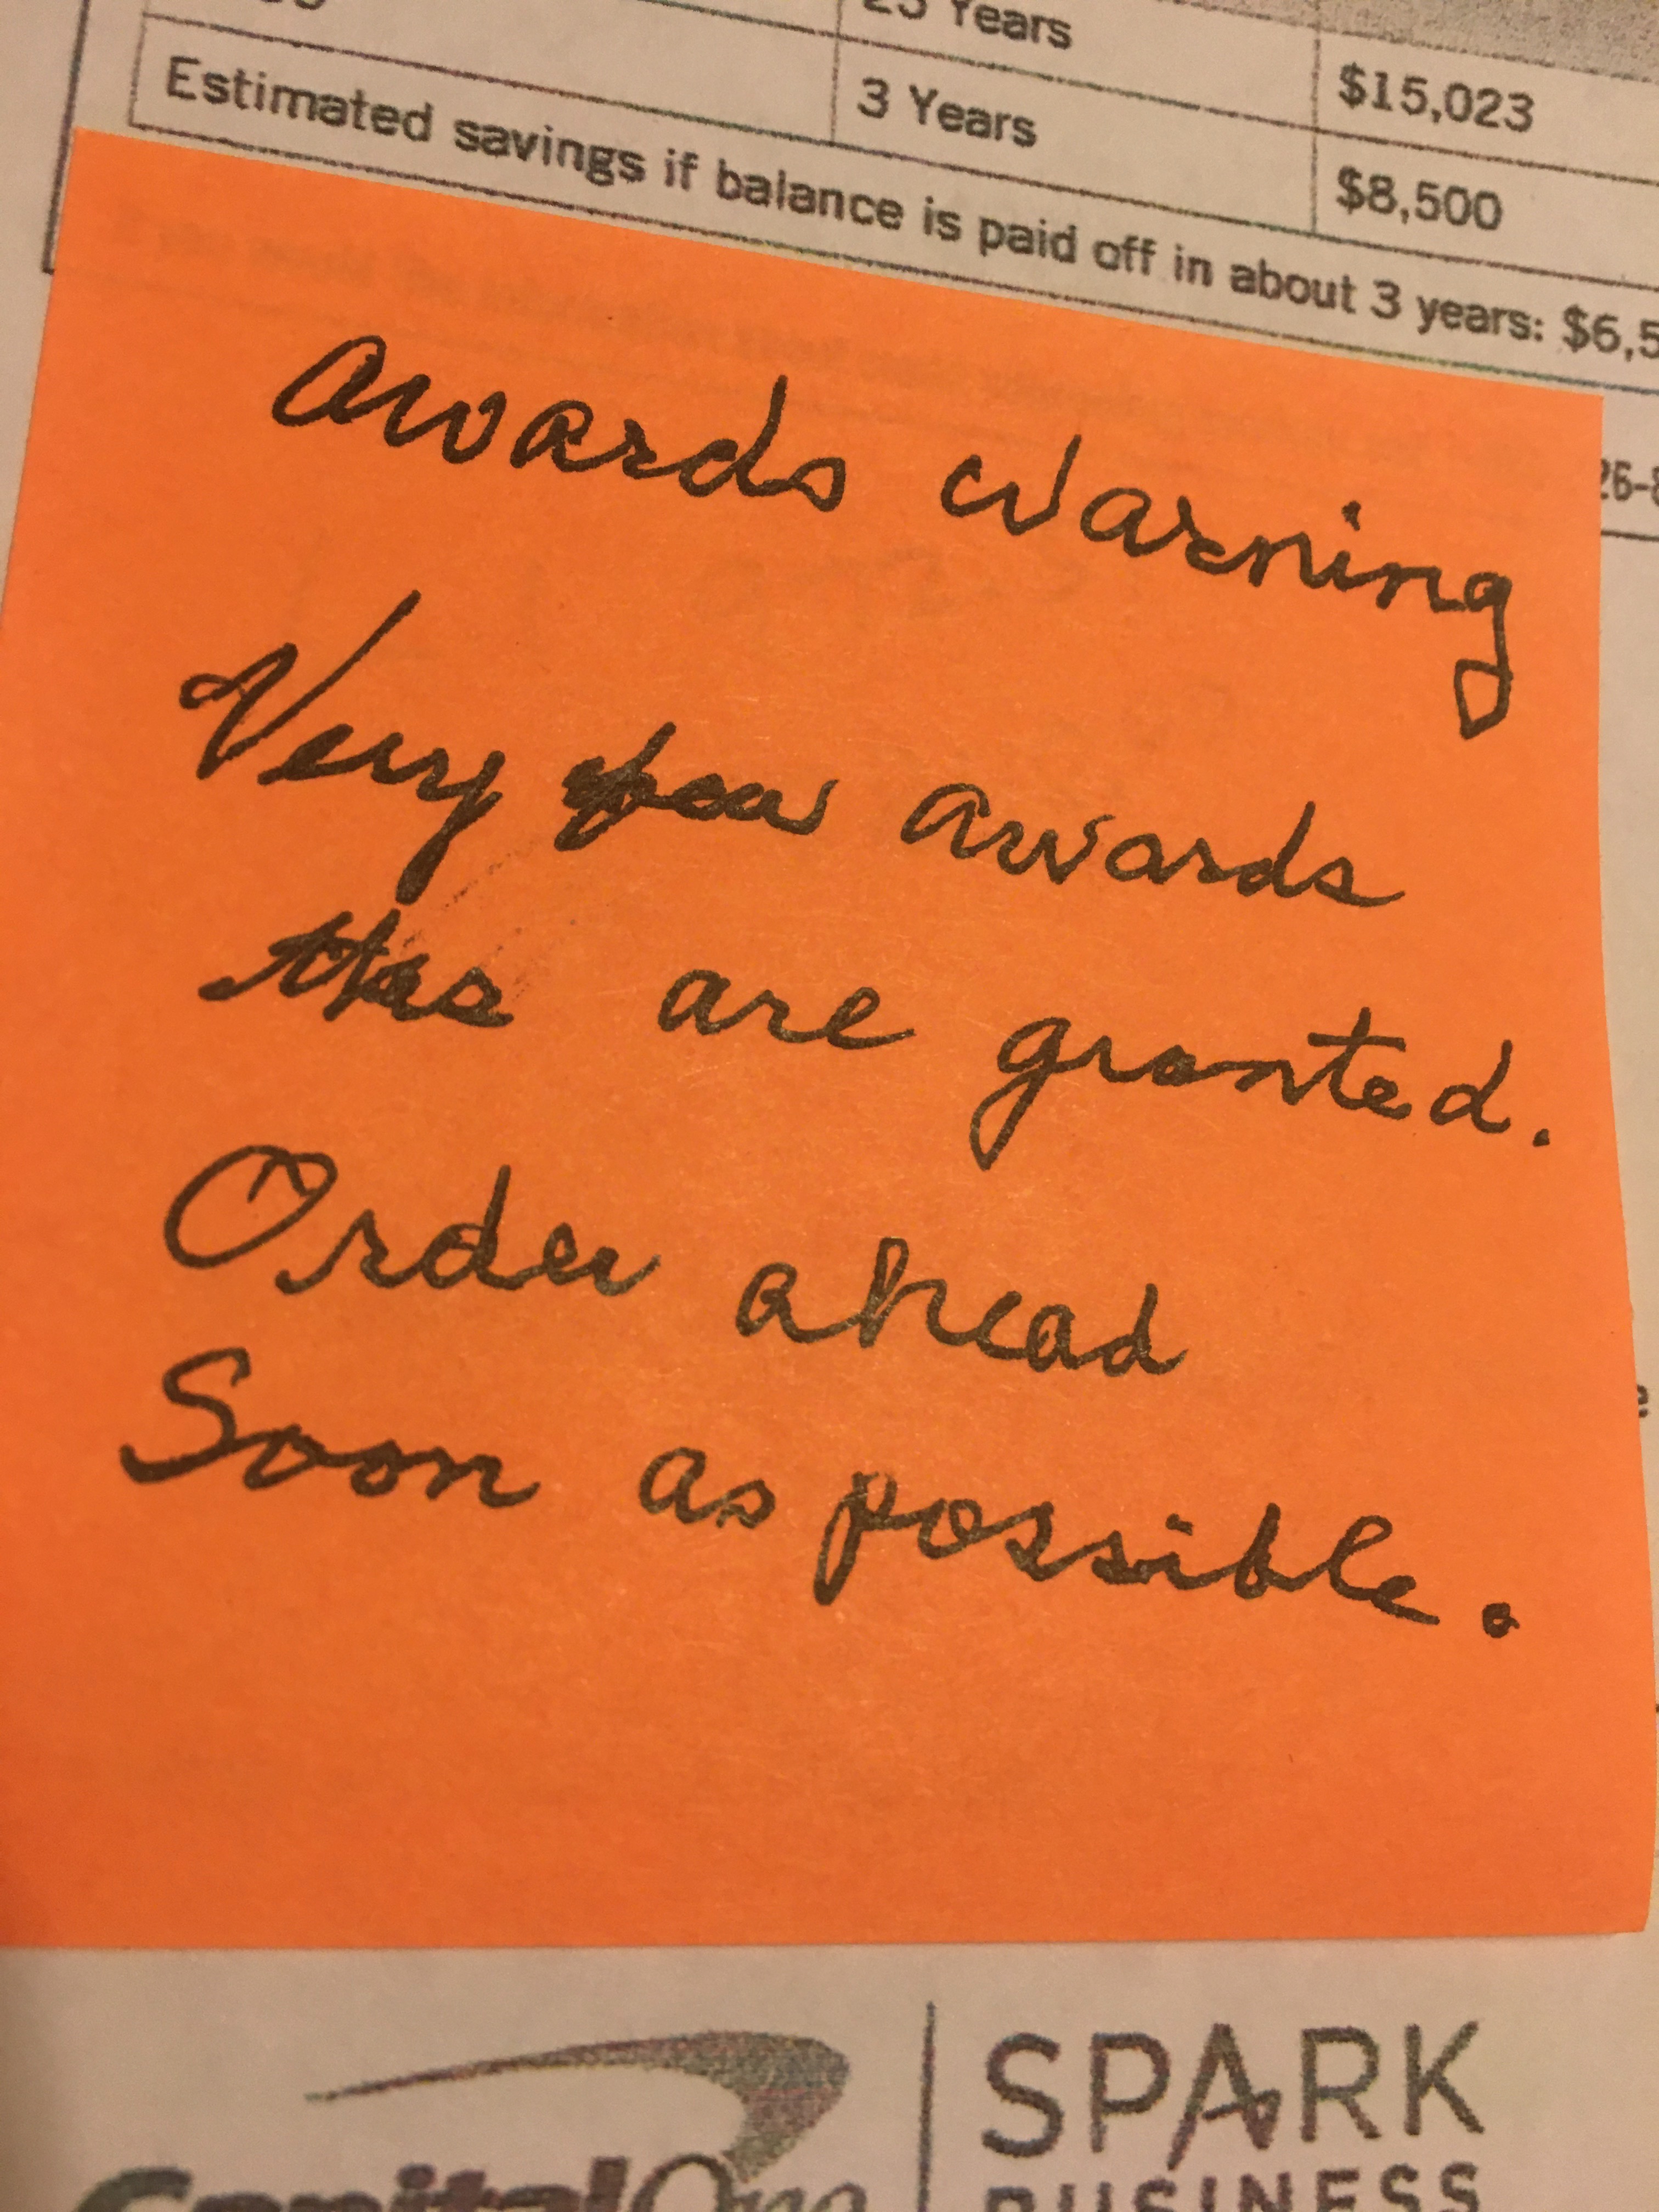 Years
$15,023
3 Years
$8,500
Estimated savings if balance is paid off in about 3 years: $6,5
26-8
awards warning
Very few awards
are granted.
Order ahead
Soon as possible.
Capital One
SPARK
BUSINESS